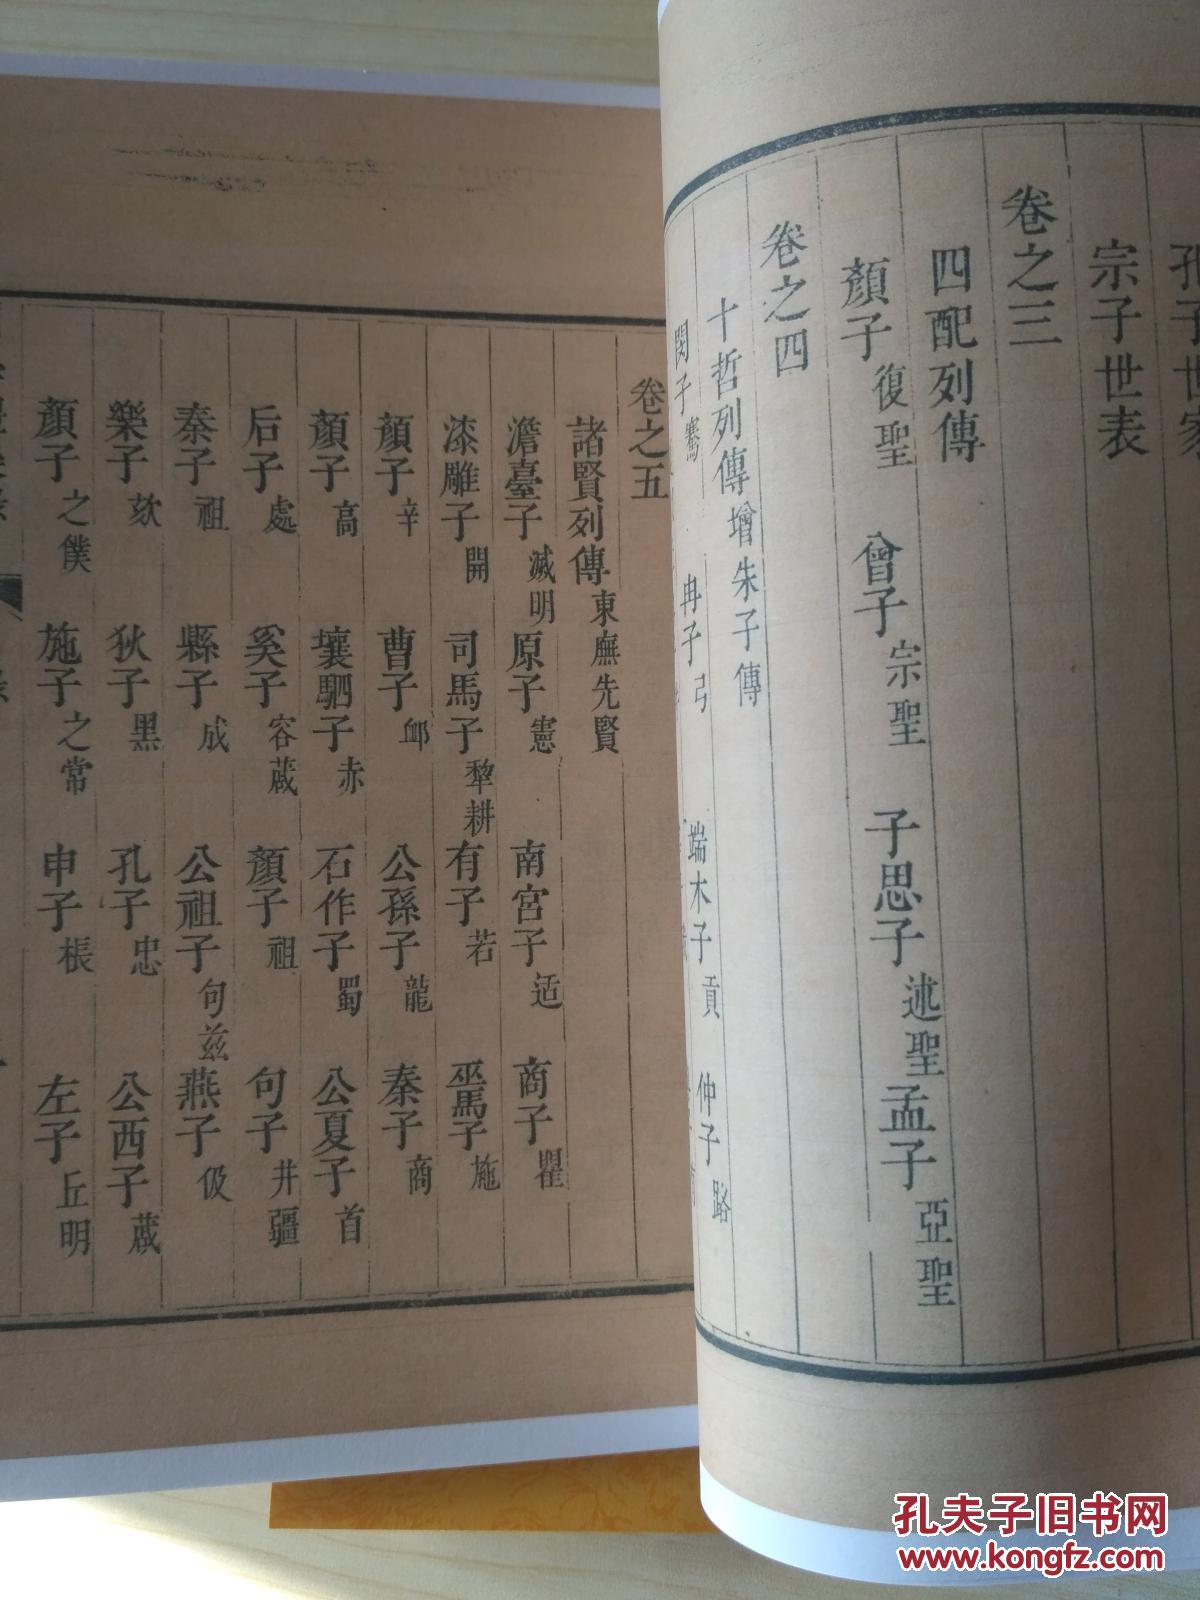 孔子世家
宗子世表
卷之三
四配列傳
顏子復聖 曾子宗聖 子思子述聖 孟子亞聖
卷之四
十哲列傳增朱子傳
閔子騫 冉子弓 端木子貢 仲子路
卷之五
諸賢列傳東廡先賢
澹臺子滅明 原子憲 南宮子适 商子瞿
漆雕子開 司馬子犂耕 有子若 巫馬子施
顏子辛 曹子卹 公孫子龍 秦子商
顏子高 壤駟子赤 石作子蜀 公夏子首
后子處 奚子容蒧 顏子祖 句子井疆
秦子祖 縣子成 公祖子句兹 燕子伋
樂子欬 狄子黑 孔子忠 公西子蒧
顏子之僕 施子之常 申子棖 左子丘明
孔夫子旧书网
www.kongfz.com